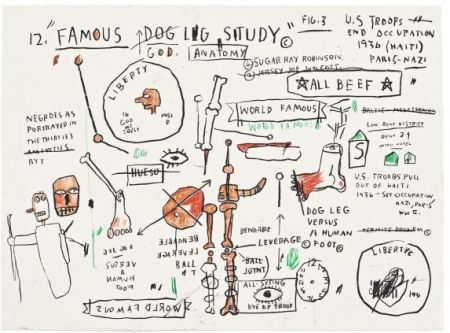 12. "FAMOUS DOG LEG STUDY" ©
GOD. ANATOMY
FIG. 3
U.S TROOPS
END OCCUPATION
1934 (HAITI)
PARIS-NAZI
SUGAR RAY ROBINSON.
JERSEY JOE WALCOTT.
ALL BEEF
LIBERTY
IN
GOD
TRUST
1951
D
WORLD FAMOUS
WORLD FAMOUS
NEGROES AS
PORTRAYED IN
THE THIRTIES
HUESO
LOW RENT DISTRICT
RENT 2$
WITH HOTEL
S
U.S. TROOPS PULL
OUT OF HAITI
1934 - SEE OCCUPATION
NAZI, PARIS
WW II.
DOG LEG
VERSUS
A HUMAN
©FOOT©
BENDABLE
LEVERAGE
BALL
JOINT
BENDABLE
LEVERAGE
BALL
DOG LEG
VERSUS
A HUMAN
FOOT
ALL SEEING
EYE OF TROOF
WORLD FAMOUS
LIBERTY